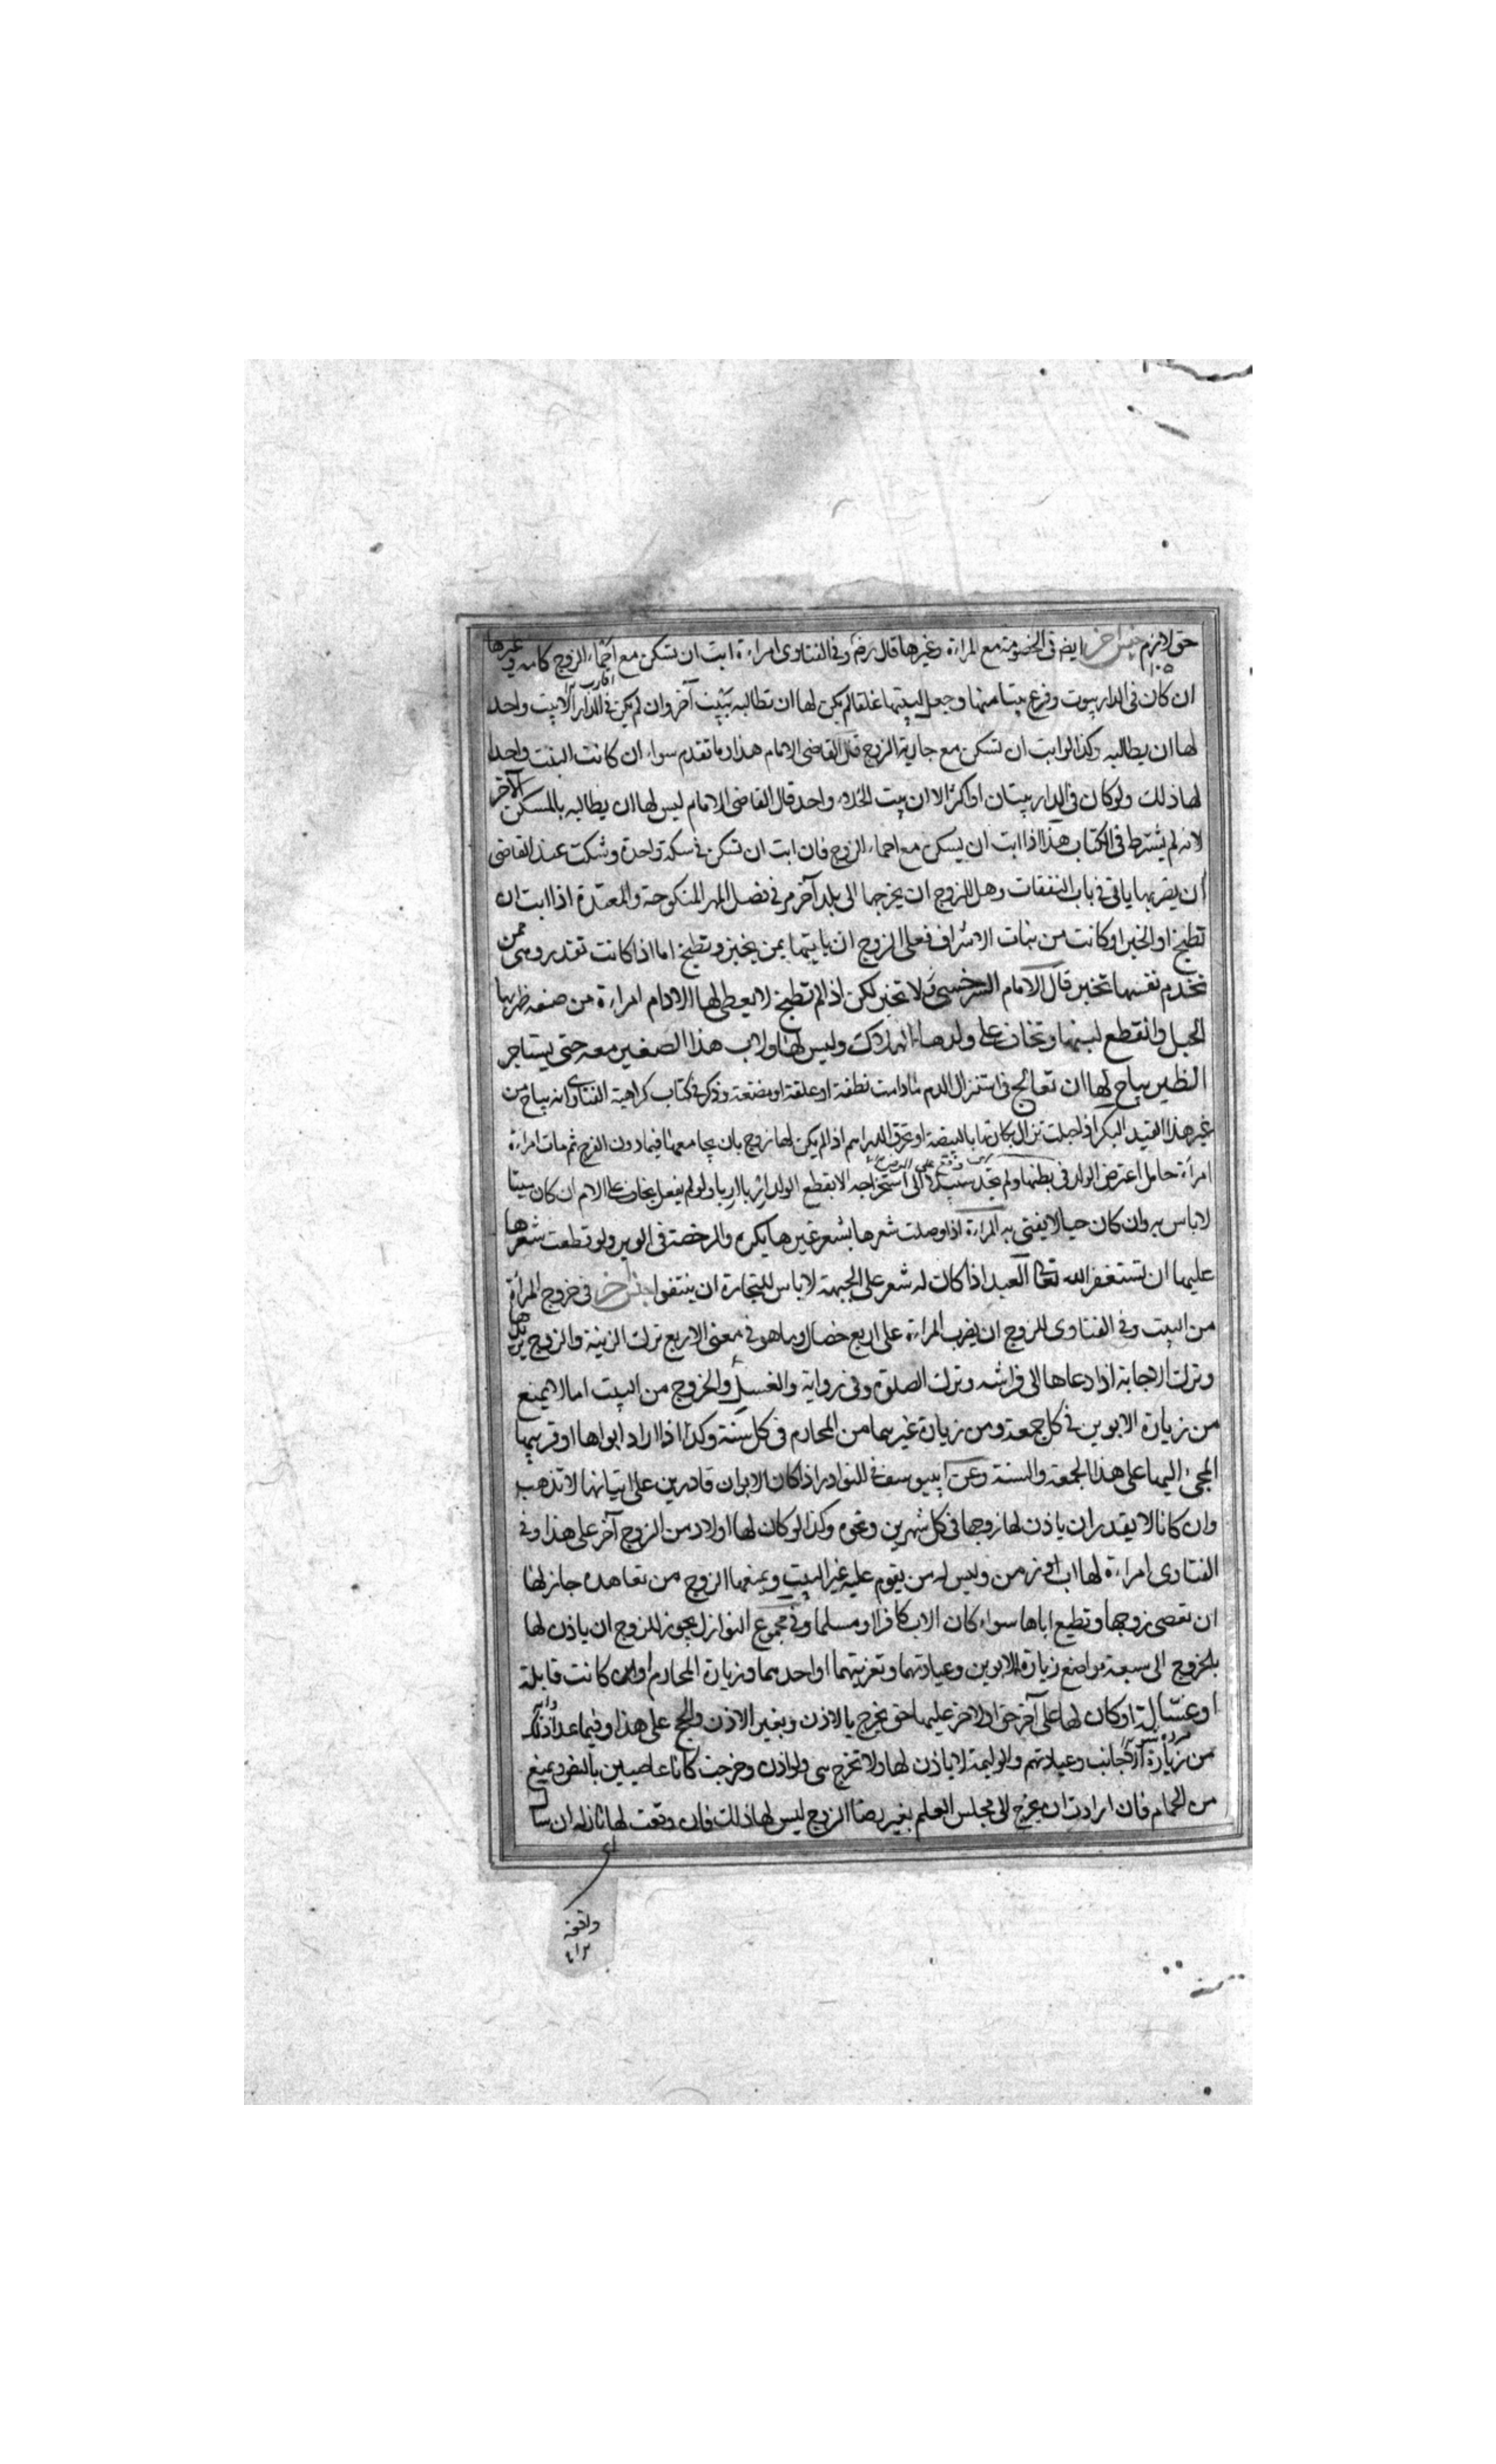 حق لازم جنس اخر ايضا في الخصومة مع المراءة وغيرها قال رضه وفي الفتاوى امراءة ابت ان تسكن مع احماء الزوج كامه وغيرها
ان كان في الدار بيوت وفرغ بيتا منها وجعل لبيتها غلقا لم يكن لها ان تطالبه ببيت آخر وان لم يكن في الدار الا بيت واحد
اقارب
لها ان يطالبه وكذا لو ابت ان تسكن مع جارية الزوج قال القاضي الامام هذا وما تقدم سواء ان كانت البيت واحدا
لها ذلك ولو كان في الدار بيتان او اكثر الا ان بيت الخلاء واحد قال القاضي الامام ليس لها ان يطالبه بالمسكن الآخر
لانه لم يشترط في الكتاب هذا اذا ابت ان يسكن مع احماء الزوج فان ابت ان تسكن في سكة واحدة وشكت عند القاضي
ان يضربها ياتي في باب النفقات وهل للزوج ان يخرجها الى بلد آخر مر في فصل المهر المنكوحة والمعتدة اذا ابت ان
تطبخ او الخبز او كانت من بنات الاشراف فعلى الزوج ان ياتيها بمن يخبز وتطبخ اما اذا كانت تقدر وهي ممن
تخدم نفسها تخبر قال الامام السرخسي لا تجبر لكن اذا لم تطبخ لا يعطى لها الادام امراءة من صنعه ظهر بها
الحبل وانقطع لبنها وتخاف على ولدها الهلاك وليس لها ولاب هذا الصغير معه حتى يستاجر
الظير يباح لها ان تعالج في استنزال الدم ما دامت نطفة او علقة او مضغة وذكر في كتاب كراهية الفتاوى انه يباح من
غير هذا القيد البكر اذا حبلت تزال بكارتها بالبيضة او بحرف الدراهم اذا لم يكن لها زوج بان يجامعها فيما دون الفرج ثم مات امراءة
امراة حامل اعترض الولد في بطنها ولم يجد سبيلا الى استخراجه الا بقطع الولد اربا اربا ولو لم يفعل يخاف على الام ان كان ميتا
لا باس به وان كان حيا لا يفتى به المراءة اذا وصلت شعرها بشعر غيرها يكره والرخصة في الوبر ولو قطعت شعرها
عليها ان تستغفر الله تعالى العبد اذا كان له شعر على الجبهة لا باس للتجارة ان ينتفوا جنس اخر في خروج المراة
من البيت وفي الفتاوى للزوج ان يضرب المراءة على اربع خصال وما هو في معنى الاربع ترك الزينة والزوج يريدها
وترك الاجابة اذا دعاها الى فراشه وترك الصلوة وفي رواية والغسل والخروج من البيت اما لا يمنع
من زيارة الابوين في كل جمعة ومن زيارة غيرهما من المحارم في كل سنة وكذا اذا اراد ابواها او قريبها
المجئ اليها على هذا الجمعة والسنة وعن ابي يوسف في النوادر اذا كان الابوان قادرين على اتيانها لا تذهب
وان كانا لا يقدران ياذن لها زوجها في كل شهرين ونحوه وكذا لو كان لها اولاد من الزوج آخر على هذا وفي
الفتاوى امراءة لها اب زمن وليس له من يقوم عليه غير البيت ويمنعها الزوج من تعاهده جاز لها
ان تعصي زوجها وتطيع اباها سواء كان الاب كافرا او مسلما وفي مجموع النوازل يجوز للزوج ان ياذن لها
بالخروج الى سبعة مواضع زيارة الابوين وعيادتهما وتعزيتهما او احدهما وزيارة المحارم وان كانت قابلة
او غسالة او كان لها على آخر حق او لاخر عليها حق يخرج بالاذن وبغير الاذن والحج على هذا وفيما عدا ذلك
من زيارة الاجانب وعيادتهم والوليمة لا ياذن لها ولا تخرج هي ولو اذن وخرجت كانا عاصيين يمنع
من الحمام فان ارادت ان يخرج الى مجلس العلم بغير رضا الزوج ليس لها ذلك فان وقعت لها نازلة ان سال